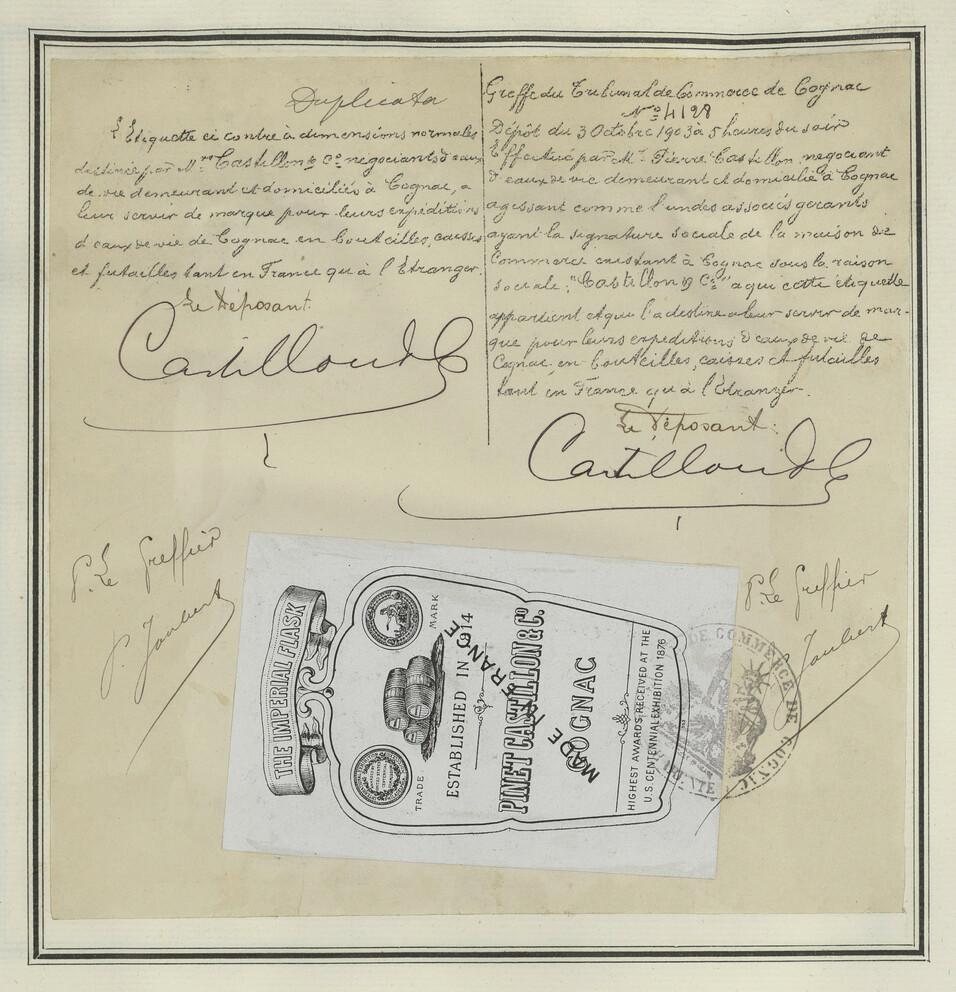 Duplicata
L'Etiquette ci contre à dimensions normales
destinée par Mrs Castillon & Co negociants d'eaux
de vie demeurant et domiciliés à Cognac, a
leur servir de marque pour leurs expéditions
d'eaux de vie de Cognac en bouteilles, caisses
et futailles tant en France qu'à l'Etranger.
Le Déposant
Castillon & Co
Greffe du Tribunal de Commerce de Cognac
No 4128
Dépôt du 3 Octobre 1903 à 5 heures du soir
Effectué par Mr. Pierre Castillon, negociant
d'eaux de vie demeurant et domicilié à Cognac
agissant comme l'un des associés gerants
ayant la signature sociale de la maison de
Commerce existant à Cognac sous la raison
sociale: "Castillon & Cie" a qui cette étiquette
appartient et qui l'a destine a leur servir de mar-
que pour leurs expeditions d'eaux de vie de
Cognac, en bouteilles, caisses et futailles
tant en France qu'à l'Etranger.
Le Déposant:
Castillon & Co
P. Le Greffier
P. Joubert
P. Le Greffier
Joubert
THE IMPERIAL FLASK
TRADE MARK
ESTABLISHED IN 1914
PINET CASTILLON & Co.
COGNAC
MADE IN FRANCE
HIGHEST AWARDS RECEIVED AT THE
U.S. CENTENNIAL EXHIBITION 1876
DE COMMERCE DE COGNAC